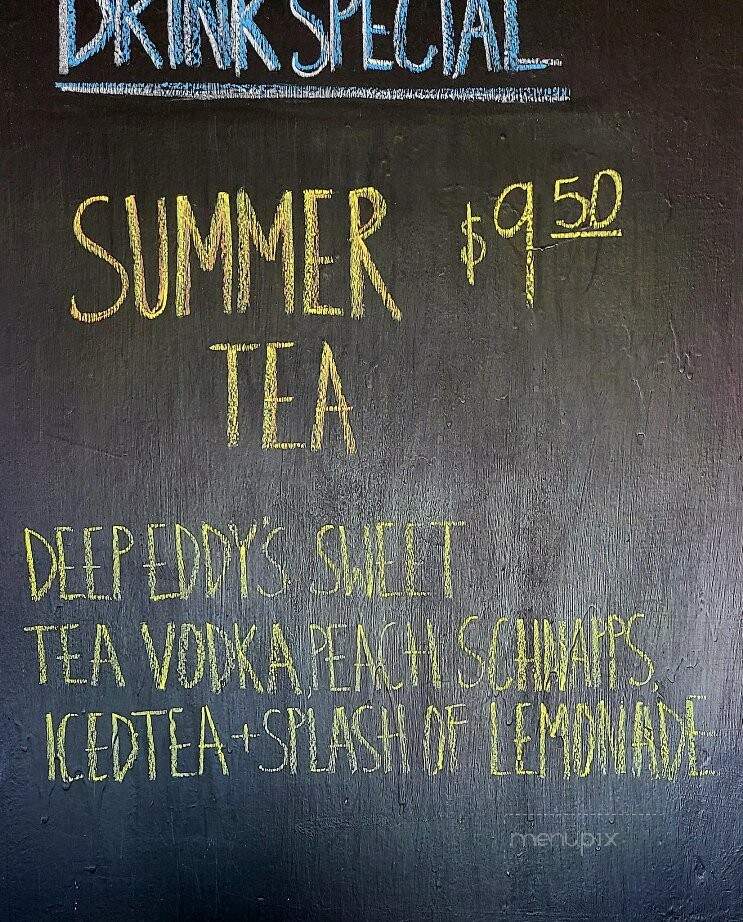 DRINK SPECIAL
SUMMER $9 50
TEA
DEEP EDDY'S SWEET
TEA VODKA, PEACH SCHNAPPS,
ICED TEA + SPLASH OF LEMONADE
menupix